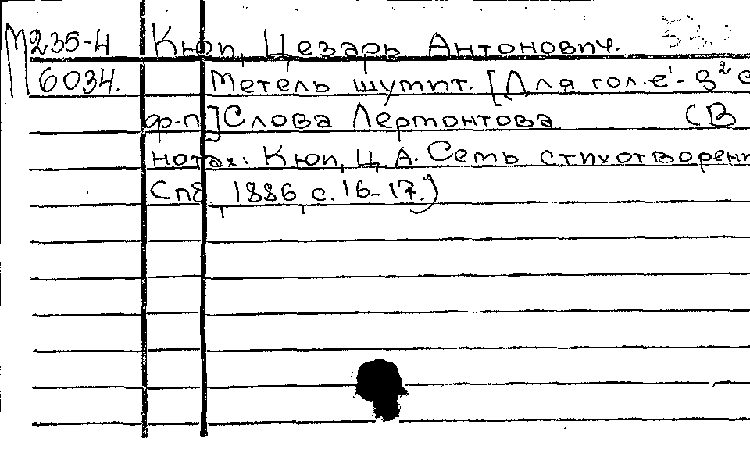 М235-4 Кюи, Цезарь Антонович.
6034. Метель шумит. [Для гол. e'-g² с
ф-п] Слова Лермонтова (В
нотах: Кюи, Ц. А. Семь стихотворен
Спб, 1886, с. 16-17.)